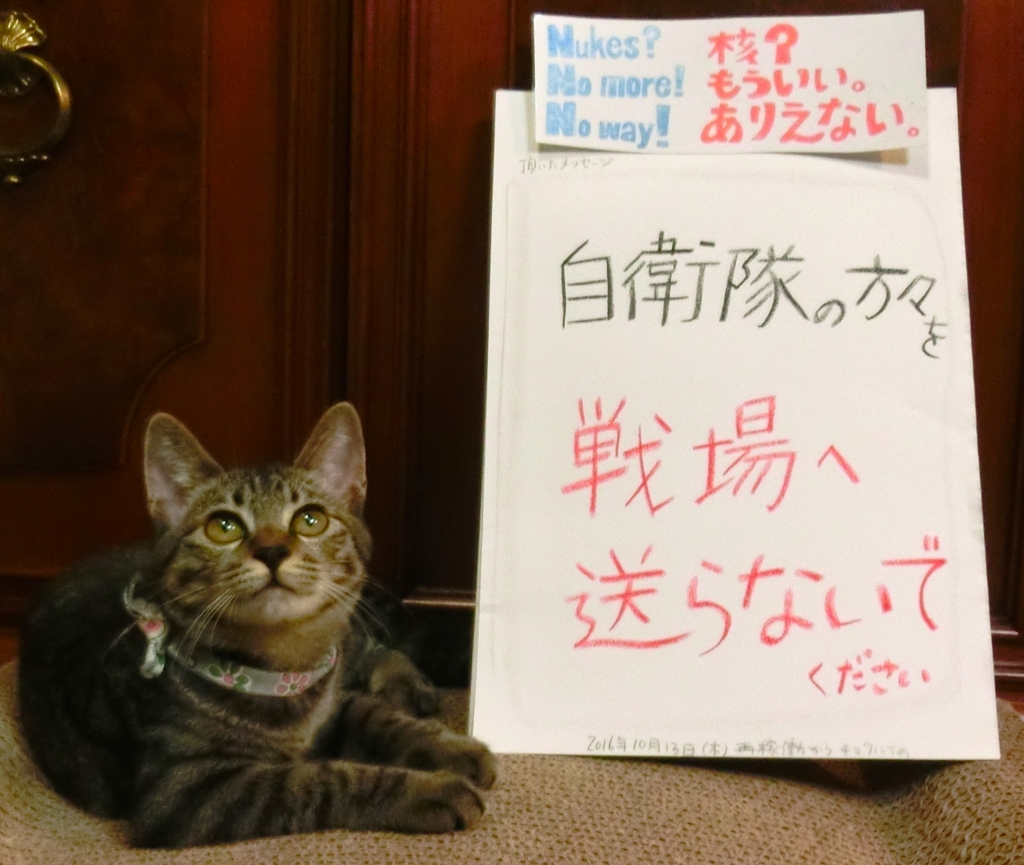 Nukes? 核?
No more! もういい。
No way! ありえない。
頂いたメッセージ
自衛隊の方々を
戦場へ
送らないで
ください
2016年10月13日(木) 再稼働